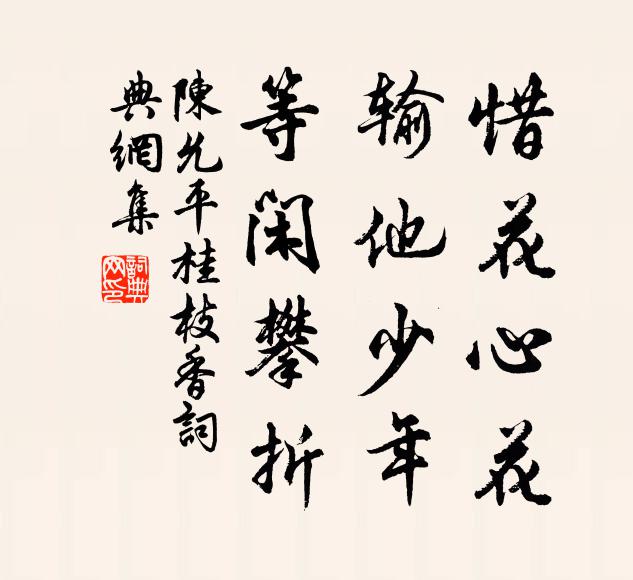 惜花心花
输他少年
等闲攀折
陳允平桂枝香詞
典網集
詞典网印